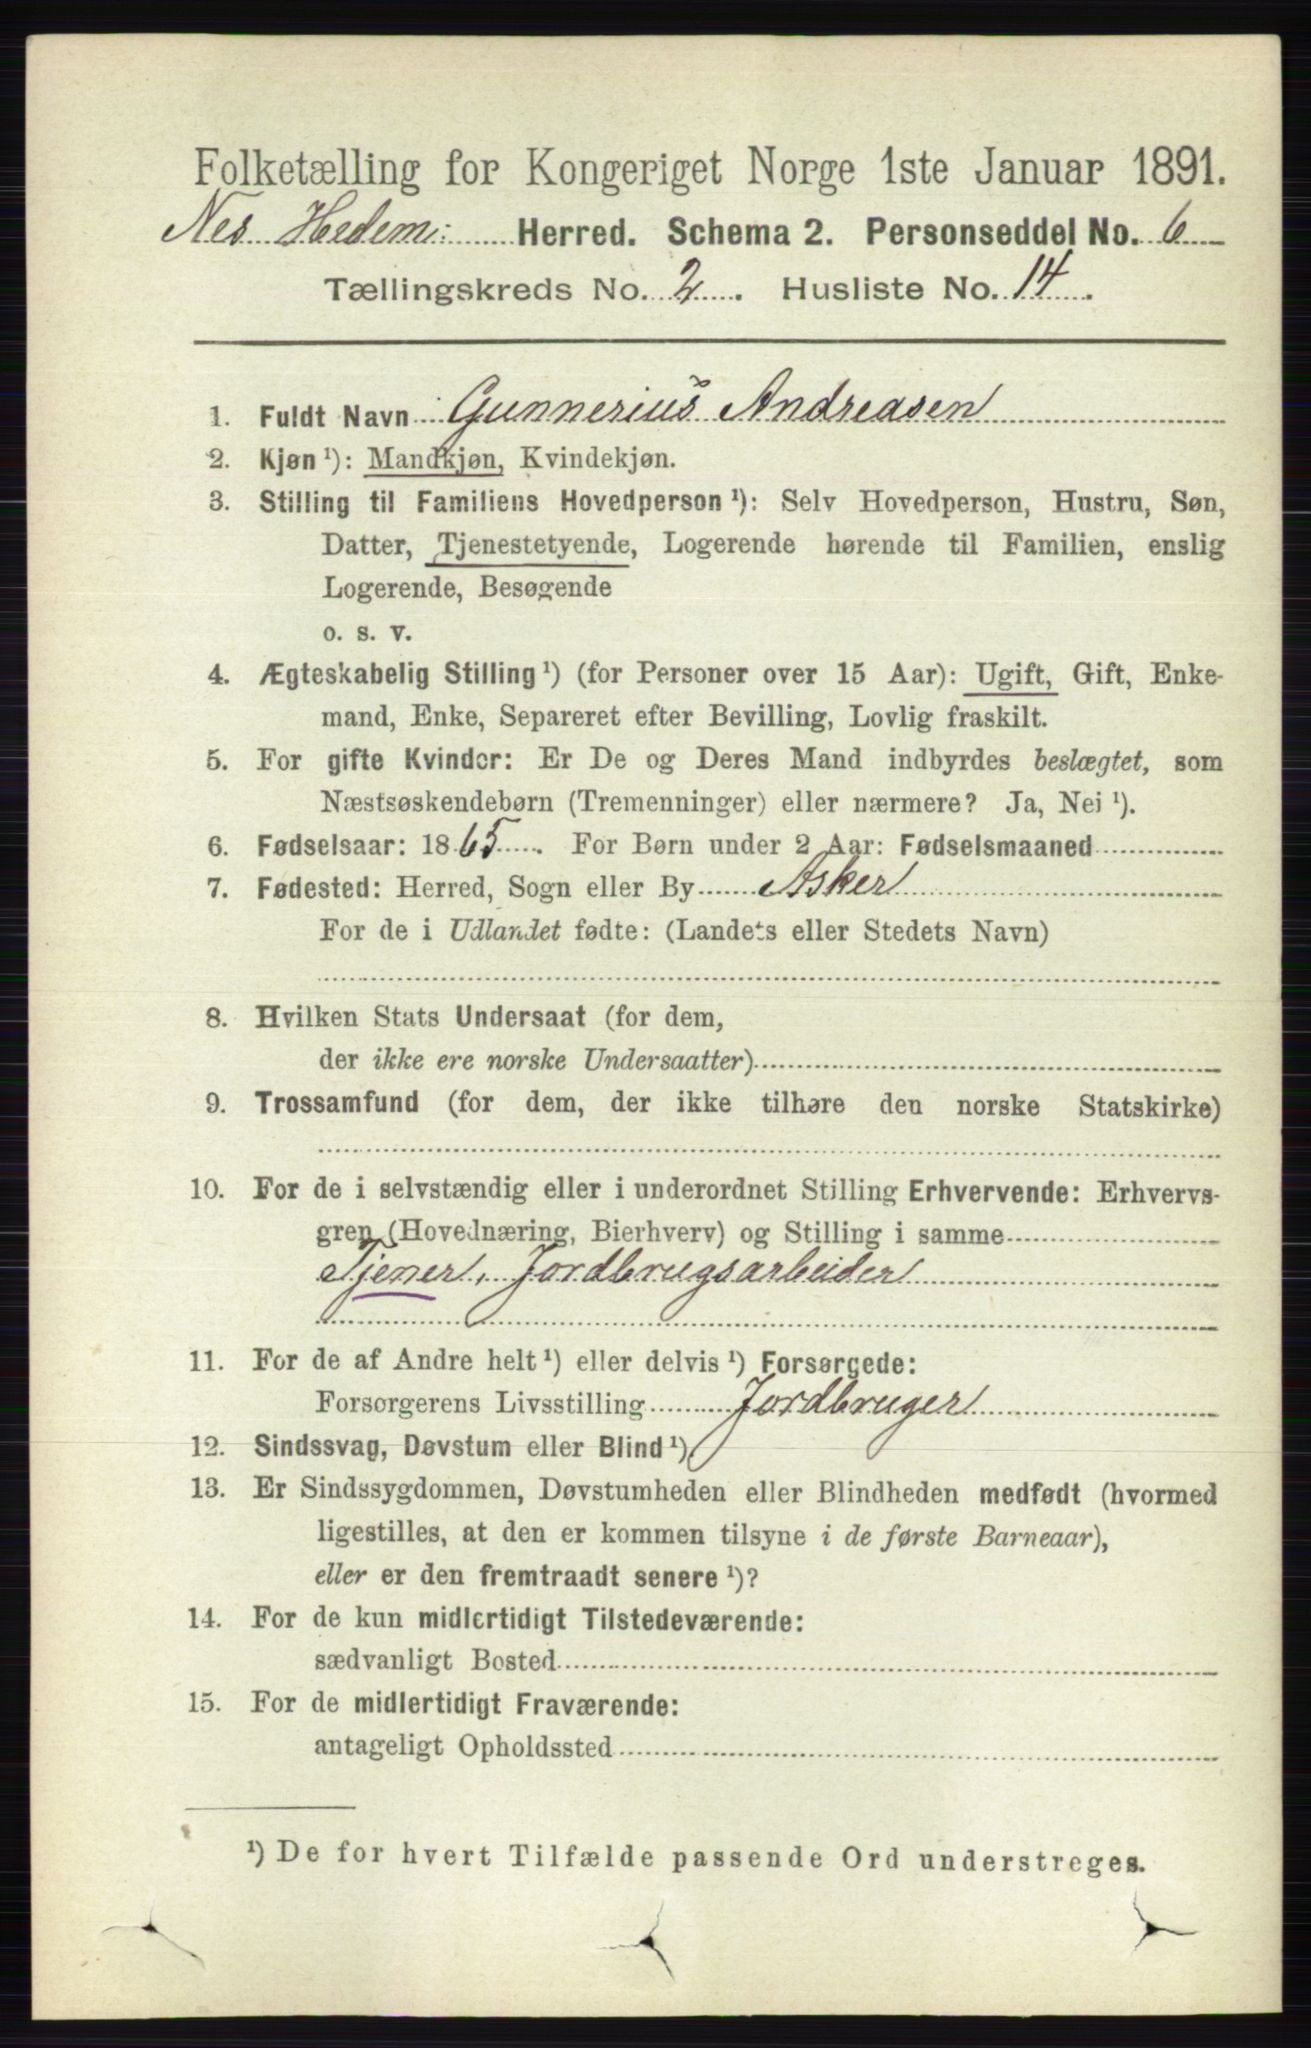 Folketælling for Kongeriget Norge 1ste Januar 1891.
Nes Hedem: Herred. Schema 2. Personseddel No. 6
Tællingskreds No. 2. Husliste No. 14.
1. Fuldt Navn Gunnerius Andreasen
2. Kjøn ¹): Mandkjøn, Kvindekjøn.
3. Stilling til Familiens Hovedperson ¹): Selv Hovedperson, Hustru, Søn,
Datter, Tjenestetyende, Logerende hørende til Familien, enslig
Logerende, Besøgende
o. s. v.
4. Ægteskabelig Stilling ¹) (for Personer over 15 Aar): Ugift, Gift, Enke-
mand, Enke, Separeret efter Bevilling, Lovlig fraskilt.
5. For gifte Kvinder: Er De og Deres Mand indbyrdes beslægtet, som
Næstsøskendebørn (Tremenninger) eller nærmere? Ja, Nei ¹).
6. Fødselsaar: 1865. For Børn under 2 Aar: Fødselsmaaned
7. Fødested: Herred, Sogn eller By Asker
For de i Udlandet fødte: (Landets eller Stedets Navn)
8. Hvilken Stats Undersaat (for dem,
der ikke ere norske Undersaatter)
9. Trossamfund (for dem, der ikke tilhøre den norske Statskirke)
10. For de i selvstændig eller i underordnet Stilling Erhvervende: Erhvervs-
gren (Hovednæring, Bierhverv) og Stilling i samme
Tjener, Jordbrugsarbeider
11. For de af Andre helt ¹) eller delvis ¹) Forsørgede:
Forsørgerens Livsstilling Jordbruger
12. Sindssvag, Døvstum eller Blind ¹).
13. Er Sindssygdommen, Døvstumheden eller Blindheden medfødt (hvormed
ligestilles, at den er kommen tilsyne i de første Barneaar),
eller er den fremtraadt senere ¹)?
14. For de kun midlertidigt Tilstedeværende:
sædvanligt Bosted
15. For de midlertidigt Fraværende:
antageligt Opholdssted
¹) De for hvert Tilfælde passende Ord understreges.